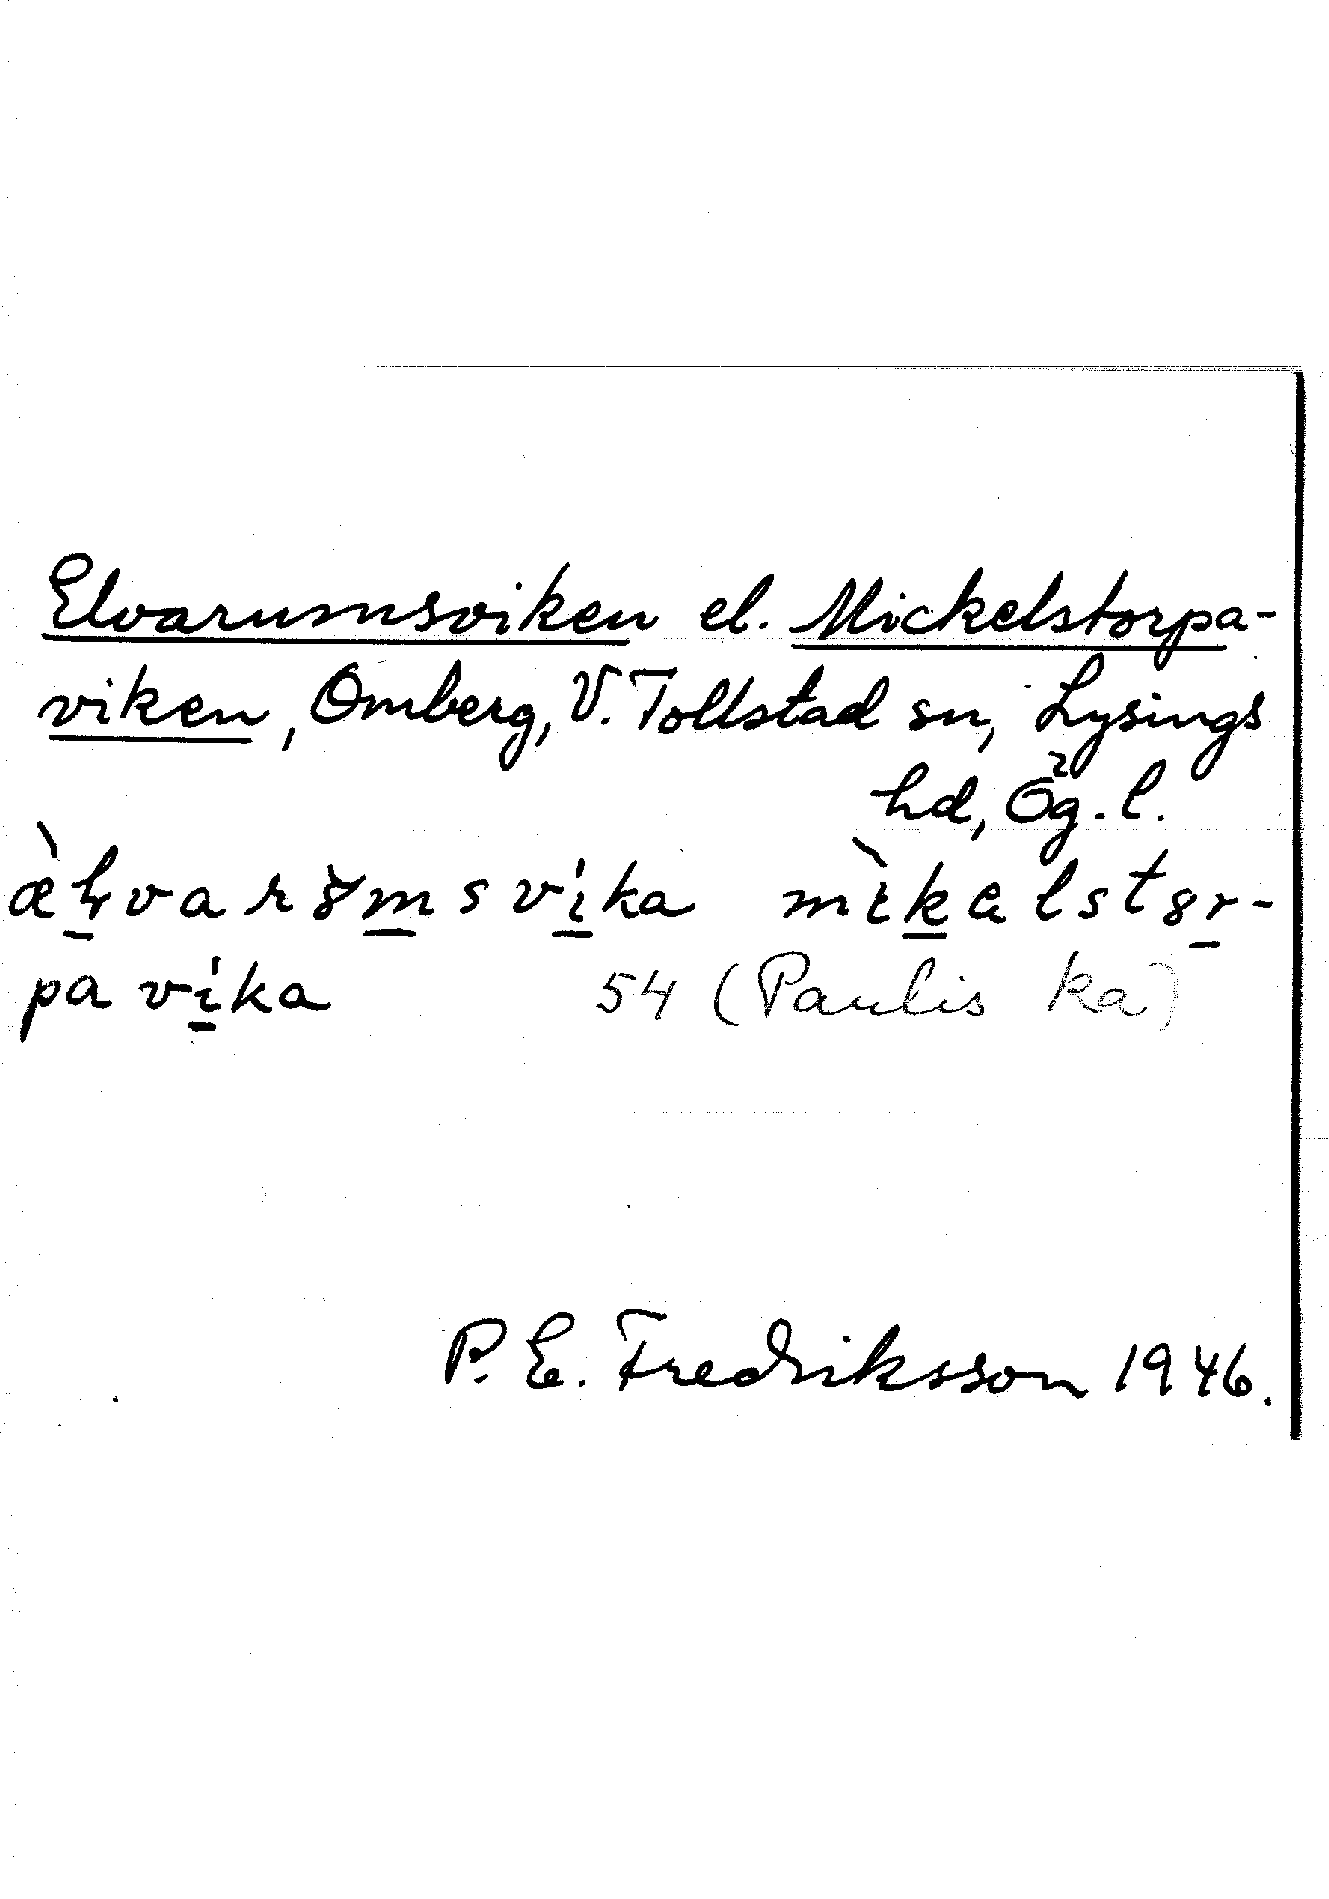 Elvarumsviken el. Mickelstorpa-
viken, Omberg, V. Tollstad sn, Lysings
hd, Ög. l.
pa vika 54 (Paulis ka)
P. E. Fredriksson 1946.